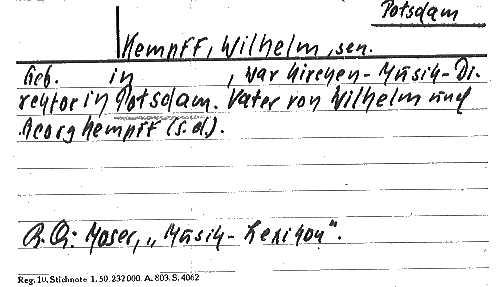 Potsdam
Kempff, Wilhelm, sen.
Geb. in , war Kirchen-Musik-Di-
rektor in Potsdam. Vater von Wilhelm und
Georg Kempff (s.d.).
B.Q.: Moser, „Musik-Lexikon".
Reg. 10. Stichnote 1. 50. 232000. A. 803. S. 4062